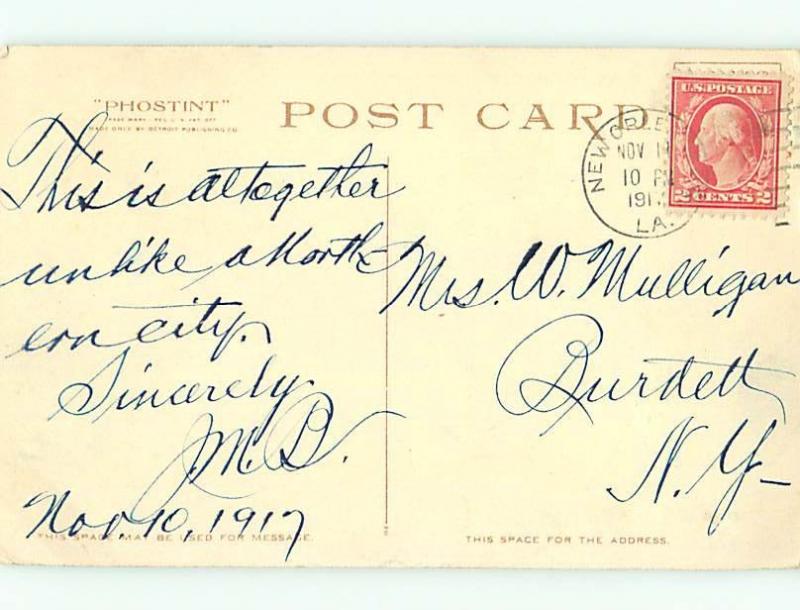 "PHOSTINT"
TRADE MARK REG. U.S. PAT. OFF.
MADE ONLY BY DETROIT PUBLISHING CO.
POST CARD
U.S. POSTAGE
2 CENTS 2
NEW ORLE
NOV 1
10 P
191
LA.
This is altogether
unlike a North-
ern city.
Sincerely
J.M.B.
Nov 10, 1917
Mrs. W. Mulligan
Burdett
N.Y-
THIS SPACE MAY BE USED FOR MESSAGE.
THIS SPACE FOR THE ADDRESS.